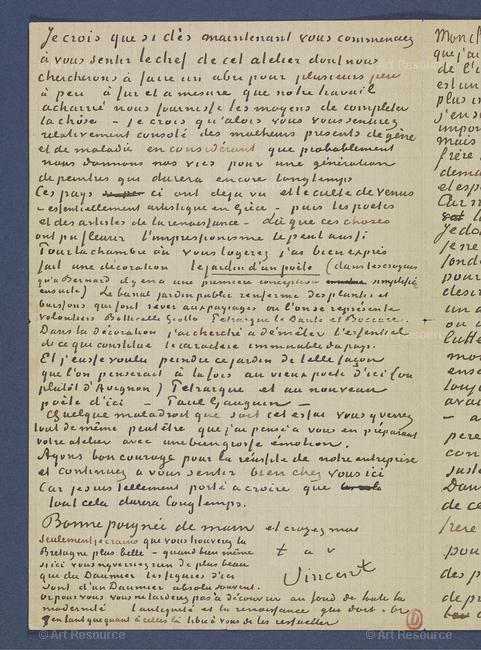 Je crois que si dès maintenant vous commencez
à vous sentir le chef de cet atelier dont nous
chercherons à faire un abri pour plusieurs peu
à peu à fur et a mesure que notre travail
acharné nous fournisse les moyens de completer
la chôse – je crois qu'alors vous vous sentirez
relativement consolé des malheurs presents de gêne
et de maladie en considérant que probablement
nous donnons nos vies pour une génération
de peintres qui durera encore longtemps
Ces pays ci ont deja vu et le culte de Venus
– essentiellement artistique en Grèce – puis les poetes
et des artistes de la renaissance – Là où ces choses
ont pu fleurir l'impressionisme le peut aussi
Pour la chambre où vous logerez j'ai bien exprès
fait une décoration le jardin d'un poète (dans les croquis
qu'a Bernard il y en a une première conception simplifiée
ensuite) Le banal jardin public renferme des plantes et
buissons qui font rêver aux paysages ou l'on se représente
volontiers Botticelli Giotto Petrarque le Dante et Boccace.
Dans la décoration j'ai cherché a démêler l'essentiel
de ce qui constitue le caractère immuable du pays.
Et j'eusse voulu peindre ce jardin de telle façon
que l'on penserait à la fois au vieux poète d'ici (ou
plutôt d'Avignon) Petrarque et au nouveau
poète d'ici – Paul Gauguin –
Quelque maladroit que soit cet essai vous y verrez
tout de même peut être que j'ai pensé a vous en préparant
votre atelier avec une bien grosse émotion.
Ayons bon courage pour la réussite de notre entreprise
et continuez a vous sentir bien chez vous ici
Car je suis tellement porté a croire que
tout cela durera longtemps.
Bonne poignée de main et croyez moi
t. à v.
Vincent
seulement je crains que vous trouverez la
Bretagne plus belle – quand bien même
si ici vous ne verriez rien de plus beau
que du Daumier les figures d'ici
sont d'un Daumier absolu souvent.
Or pour vous vous ne tarderez pas à découvrir au fond de toute la
modernité l'antiquité et la renaissance qui dort. Or
en tant que quant à celles là libre à vous de les reveiller
Mon ch
que j'ai
de l'i
est un
plus in
j'en s
impor
mais
frère
dema
et esp
la
Je do
je ne
fond
pour
desir
un a
ou
lutte
mon
ense
touj
avai
– a
pere
con
juste
Daum
de ce
frere
pou
des p
de pr
© Art Resource
© Art Resource
© Art Resource
© Art Resource